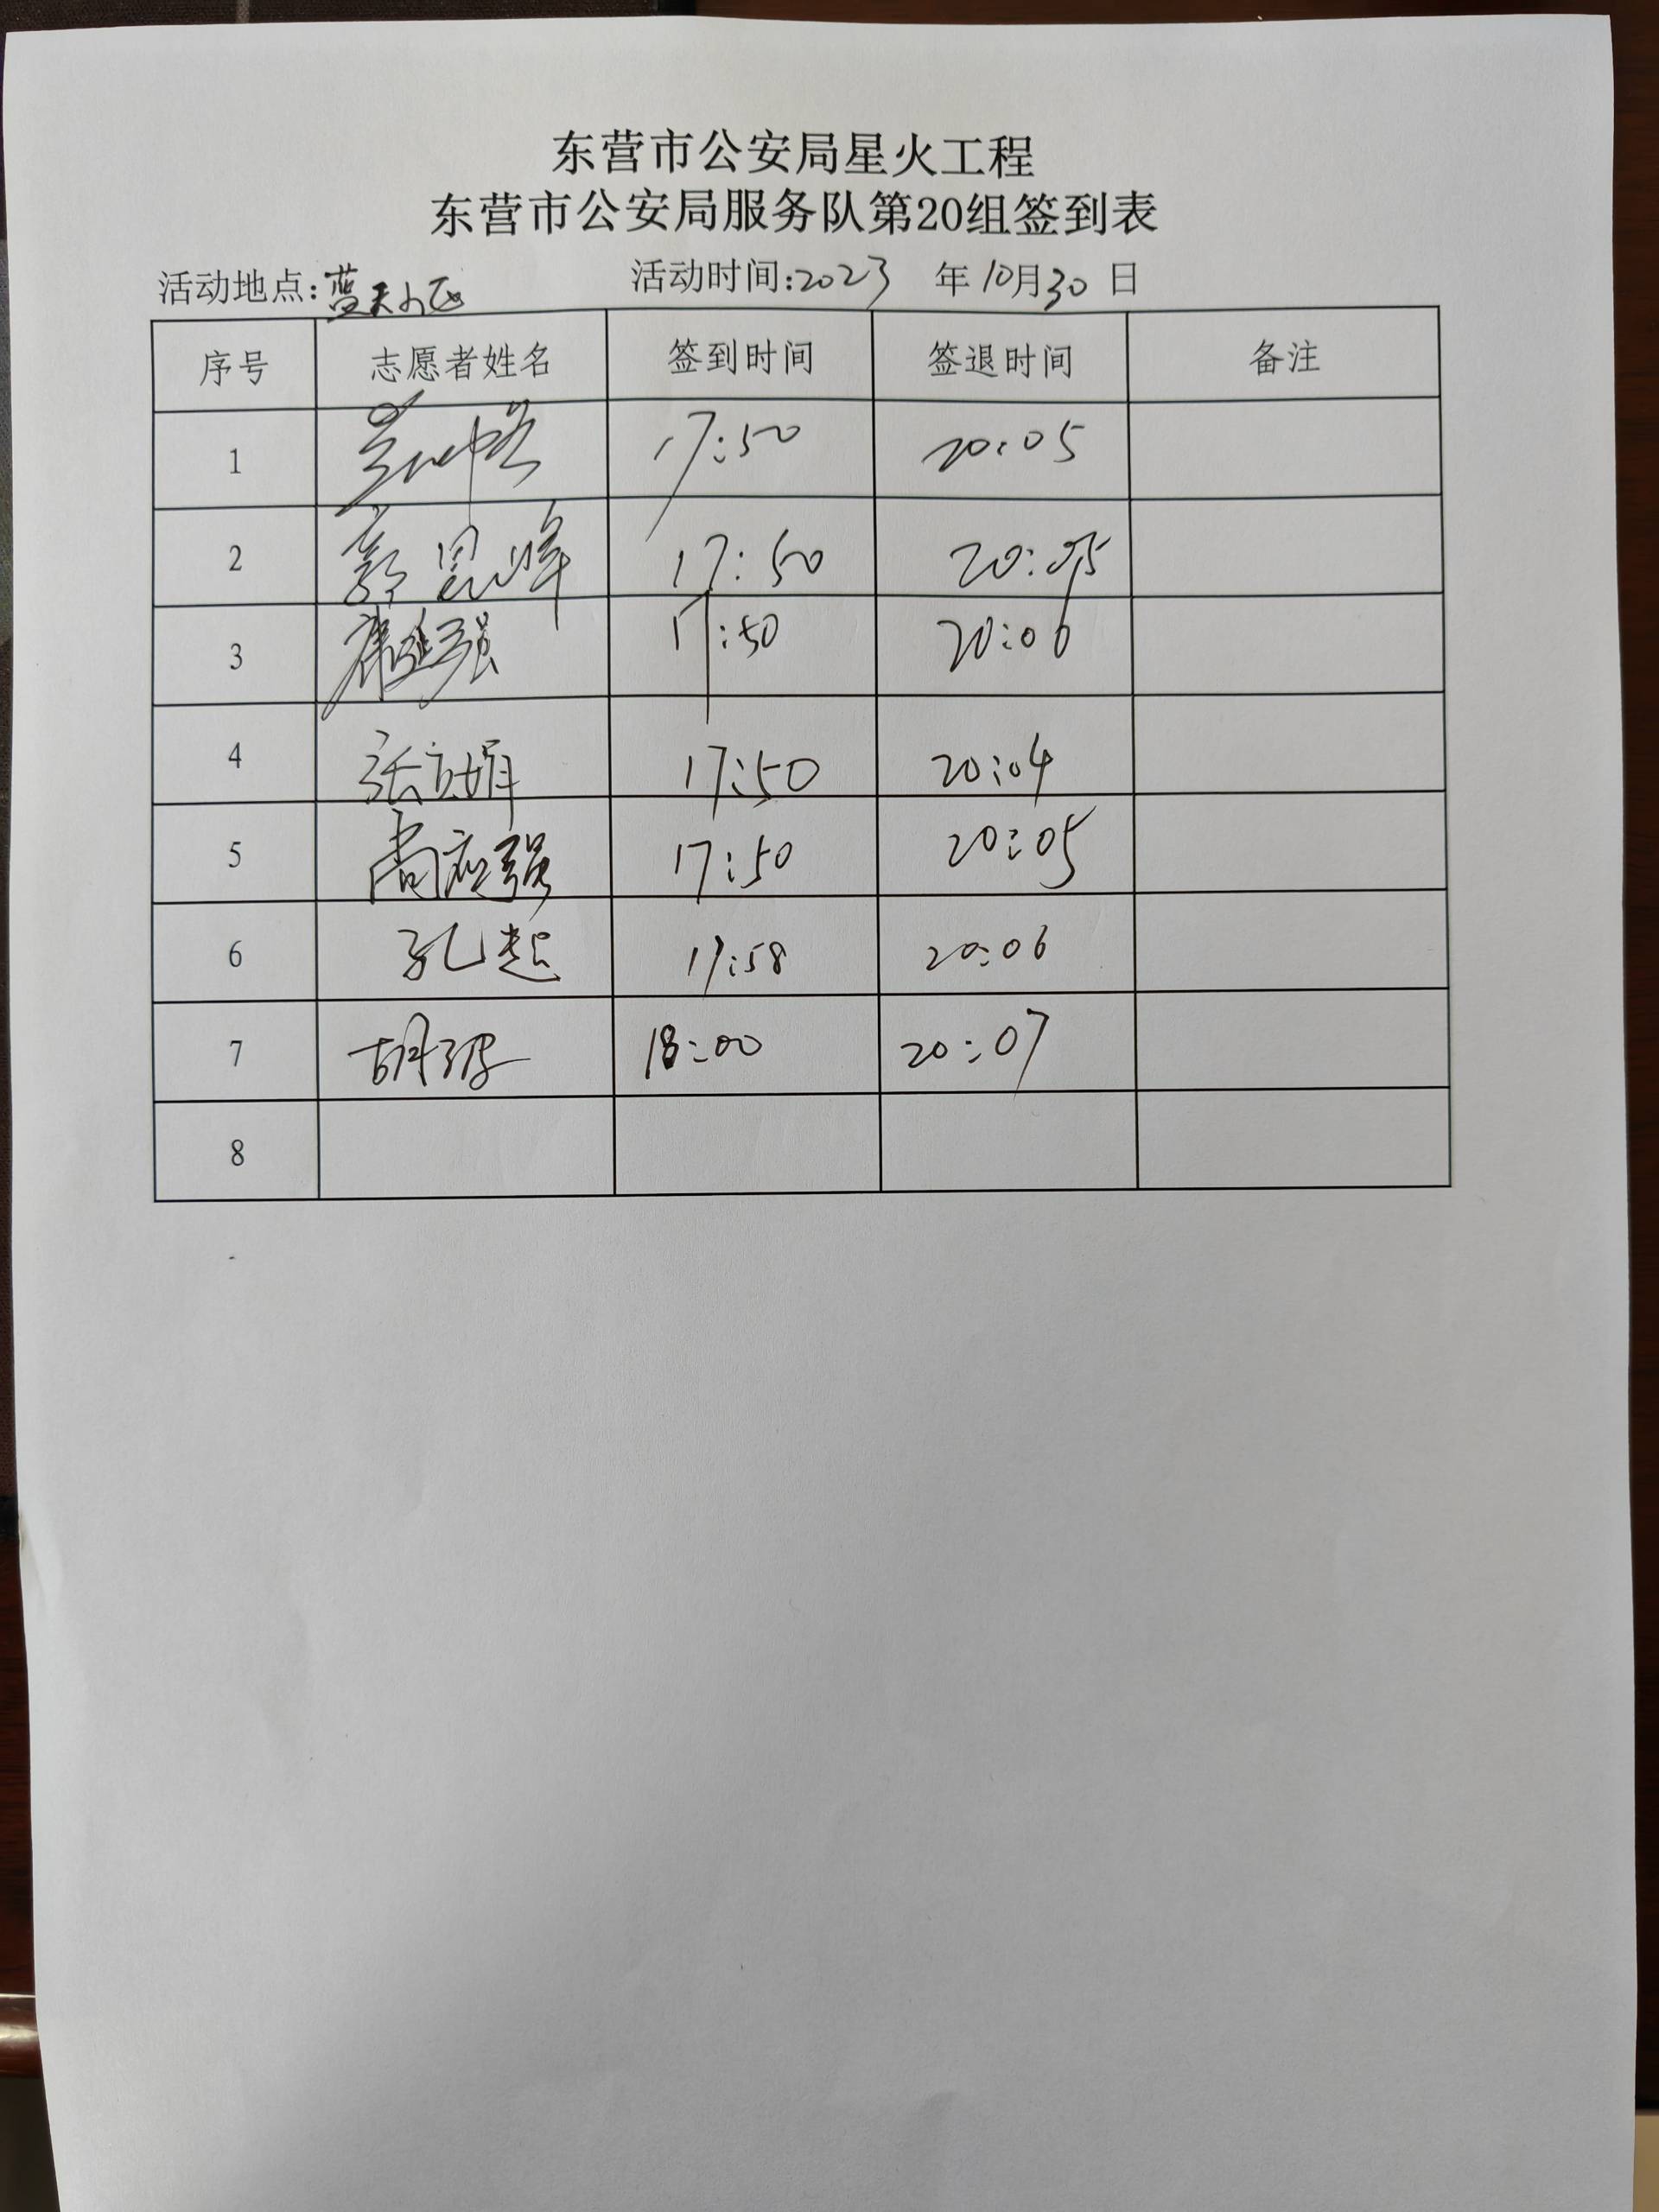 东营市公安局星火工程
东营市公安局服务队第20组签到表
活动地点:蓝天小区 活动时间:2023 年10月30日
序号 志愿者姓名 签到时间 签退时间 备注
1 17:50 20:05
2 郭昆峰 17:50 20:05
3 17:50 20:06
4 张 娟 17:50 20:04
5 尚应强 17:50 20:05
6 孔超 17:58 20:06
7 胡 18:00 20:07
8